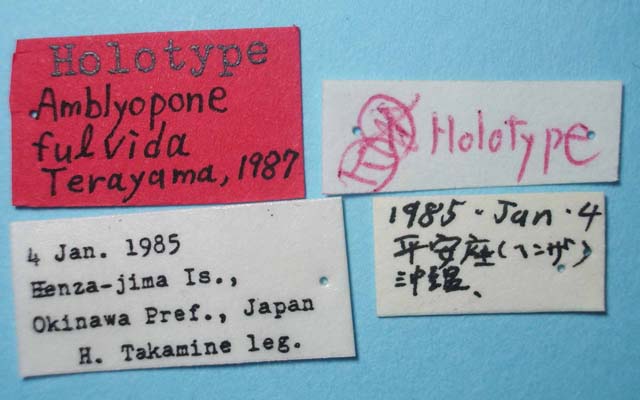 Holotype
Amblyopone
fulvida
Terayama, 1987
Holotype
4 Jan. 1985
Henza-jima Is.,
Okinawa Pref., Japan
H. Takamine leg.
1985・Jan・4
平安座(ヘンザ)
沖縄、